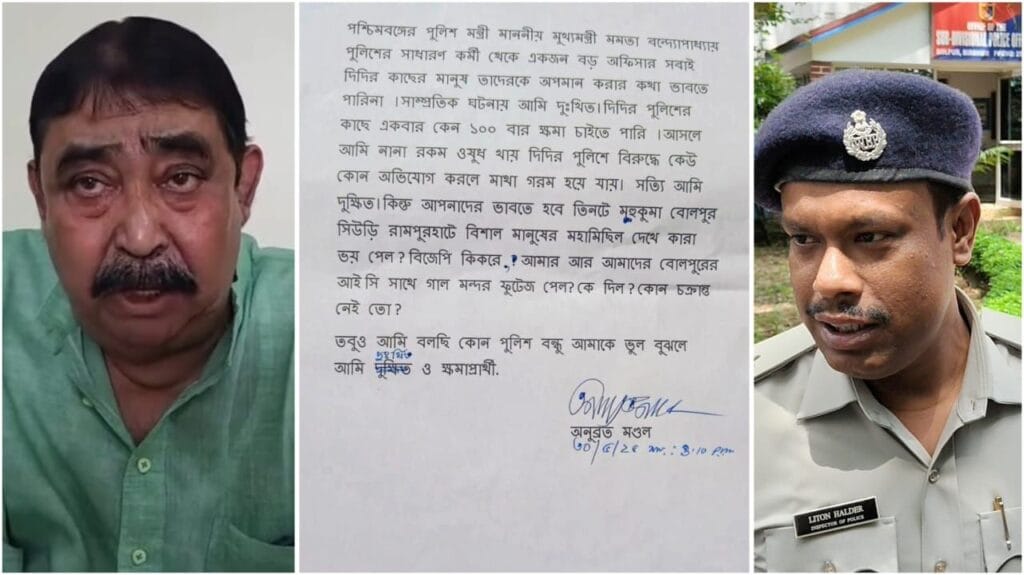 পশ্চিমবঙ্গের পুলিশ মন্ত্রী মাননীয় মুখ্যমন্ত্রী মমতা বন্দ্যোপাধ্যায়
পুলিশের সাধারণ কর্মী থেকে একজন বড় অফিসার সবাই
দিদির কাছের মানুষ তাদেরকে অপমান করার কথা ভাবতে
পারিনা । সাম্প্রতিক ঘটনায় আমি দুঃখিত। দিদির পুলিশের
কাছে একবার কেন ১০০ বার ক্ষমা চাইতে পারি । আসলে
আমি নানা রকম ওষুধ খায় দিদির পুলিশে বিরুদ্ধে কেউ
কোন অভিযোগ করলে মাথা গরম হয়ে যায়। সত্যি আমি
দুক্ষিত। কিন্তু আপনাদের ভাবতে হবে তিনটে মুহকুমা বোলপুর
সিউড়ি রামপুরহাটে বিশাল মানুষের মহামিছিল দেখে কারা
ভয় পেল ? বিজেপি কিকরে ,? আমার আর আমাদের বোলপুরের
আই সি সাথে গাল মন্দর ফুটেজ পেল? কে দিল ? কোন চক্রান্ত
নেই তো ?
তবুও আমি বলছি কোন পুলিশ বন্ধু আমাকে ভুল বুঝলে
দুঃখিত
আমি দুক্ষিত ও ক্ষমাপ্রার্থী.
অনুব্রত মণ্ডল
৩০/৫/২৫
OFFICE OF THE
SUB-DIVISIONAL POLICE OFFICER
BOLPUR, BIRBHUM
LITON HALDER
INSPECTOR OF POLICE